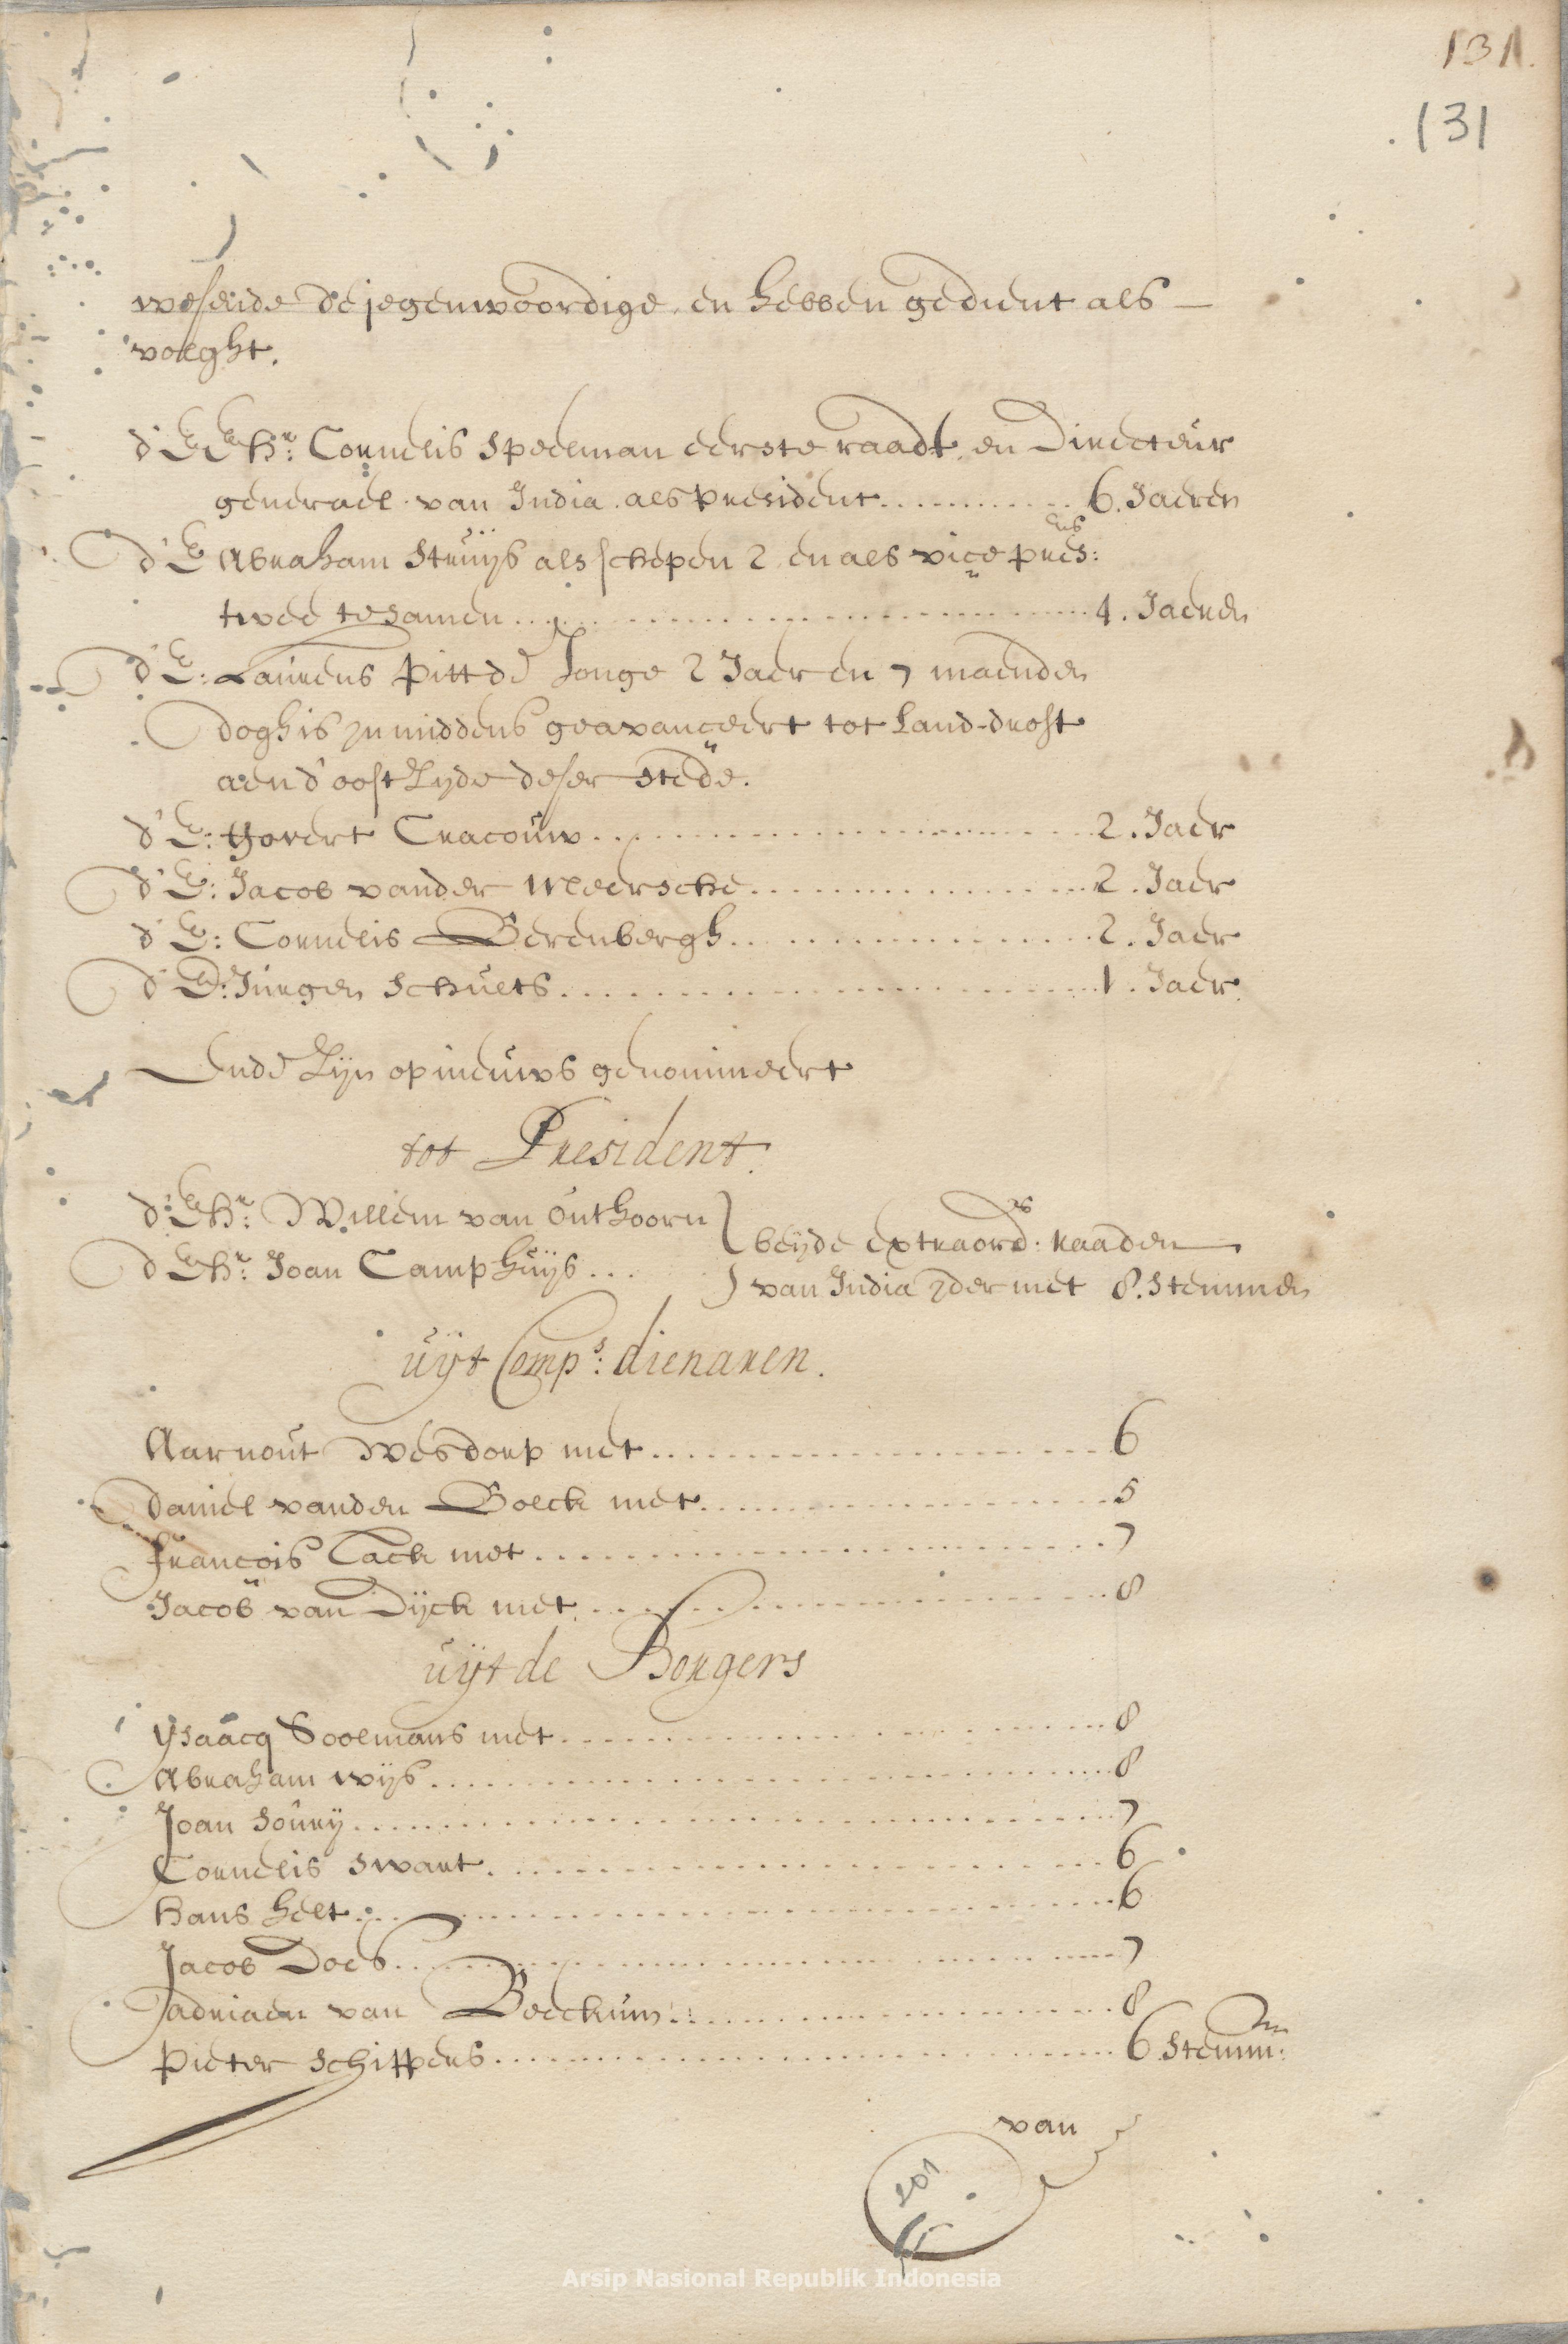 131.
131
wesende de jegenwoordige, en hebben gedient als
volght.
d' E E Hr: Cornelis Speelman eerste raadt, en Directeur
generael van India als president 6. Jaeren
d' E Abraham Struijs als schepen 2 en als vice pres:
twee tesamen 4. Jaeren
d' E: Laurens Pitt de Jonge 2 Jaer en 7 maenden
dogh is inmiddens geavanceert tot Land-drost
aen d' oost zyde deser stede.
d' E: Govert Cracouw 2. Jaer
d' E: Jacob vander Meersche 2. Jaer
d' E: Cornelis Berenbergh 2. Jaer
d' E: Jurgen Schults 1. Jaer
Ende zijn opnieuws genomineert
tot President.
d' E Hr: Willem van Outhoorn
d' E Hr: Joan Camphuijs
beijde extraord: raaden
van India yder met 8. stemmen
uijt Comps: dienaren.
Aarnout Wesdorp met 6
Daniel vanden Bolck met 5
Francois Tack met 7
Jacob van Dijck met 8
uijt de Borgers
Ysaacq Soolmans met 8
Abraham Wijs 8
Joan Soury 7
Cornelis Swart 6
Hans Helt 6
Jacob Does 7
adriaen van Beeckum 8
Pieter Schippers 6 stemm:
van
Arsip Nasional Republik Indonesia